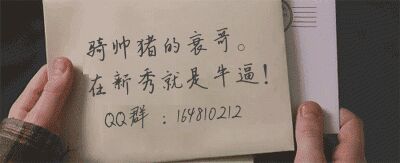 骑帅猪的衰哥。
在新秀就是牛逼！
QQ群：164810212